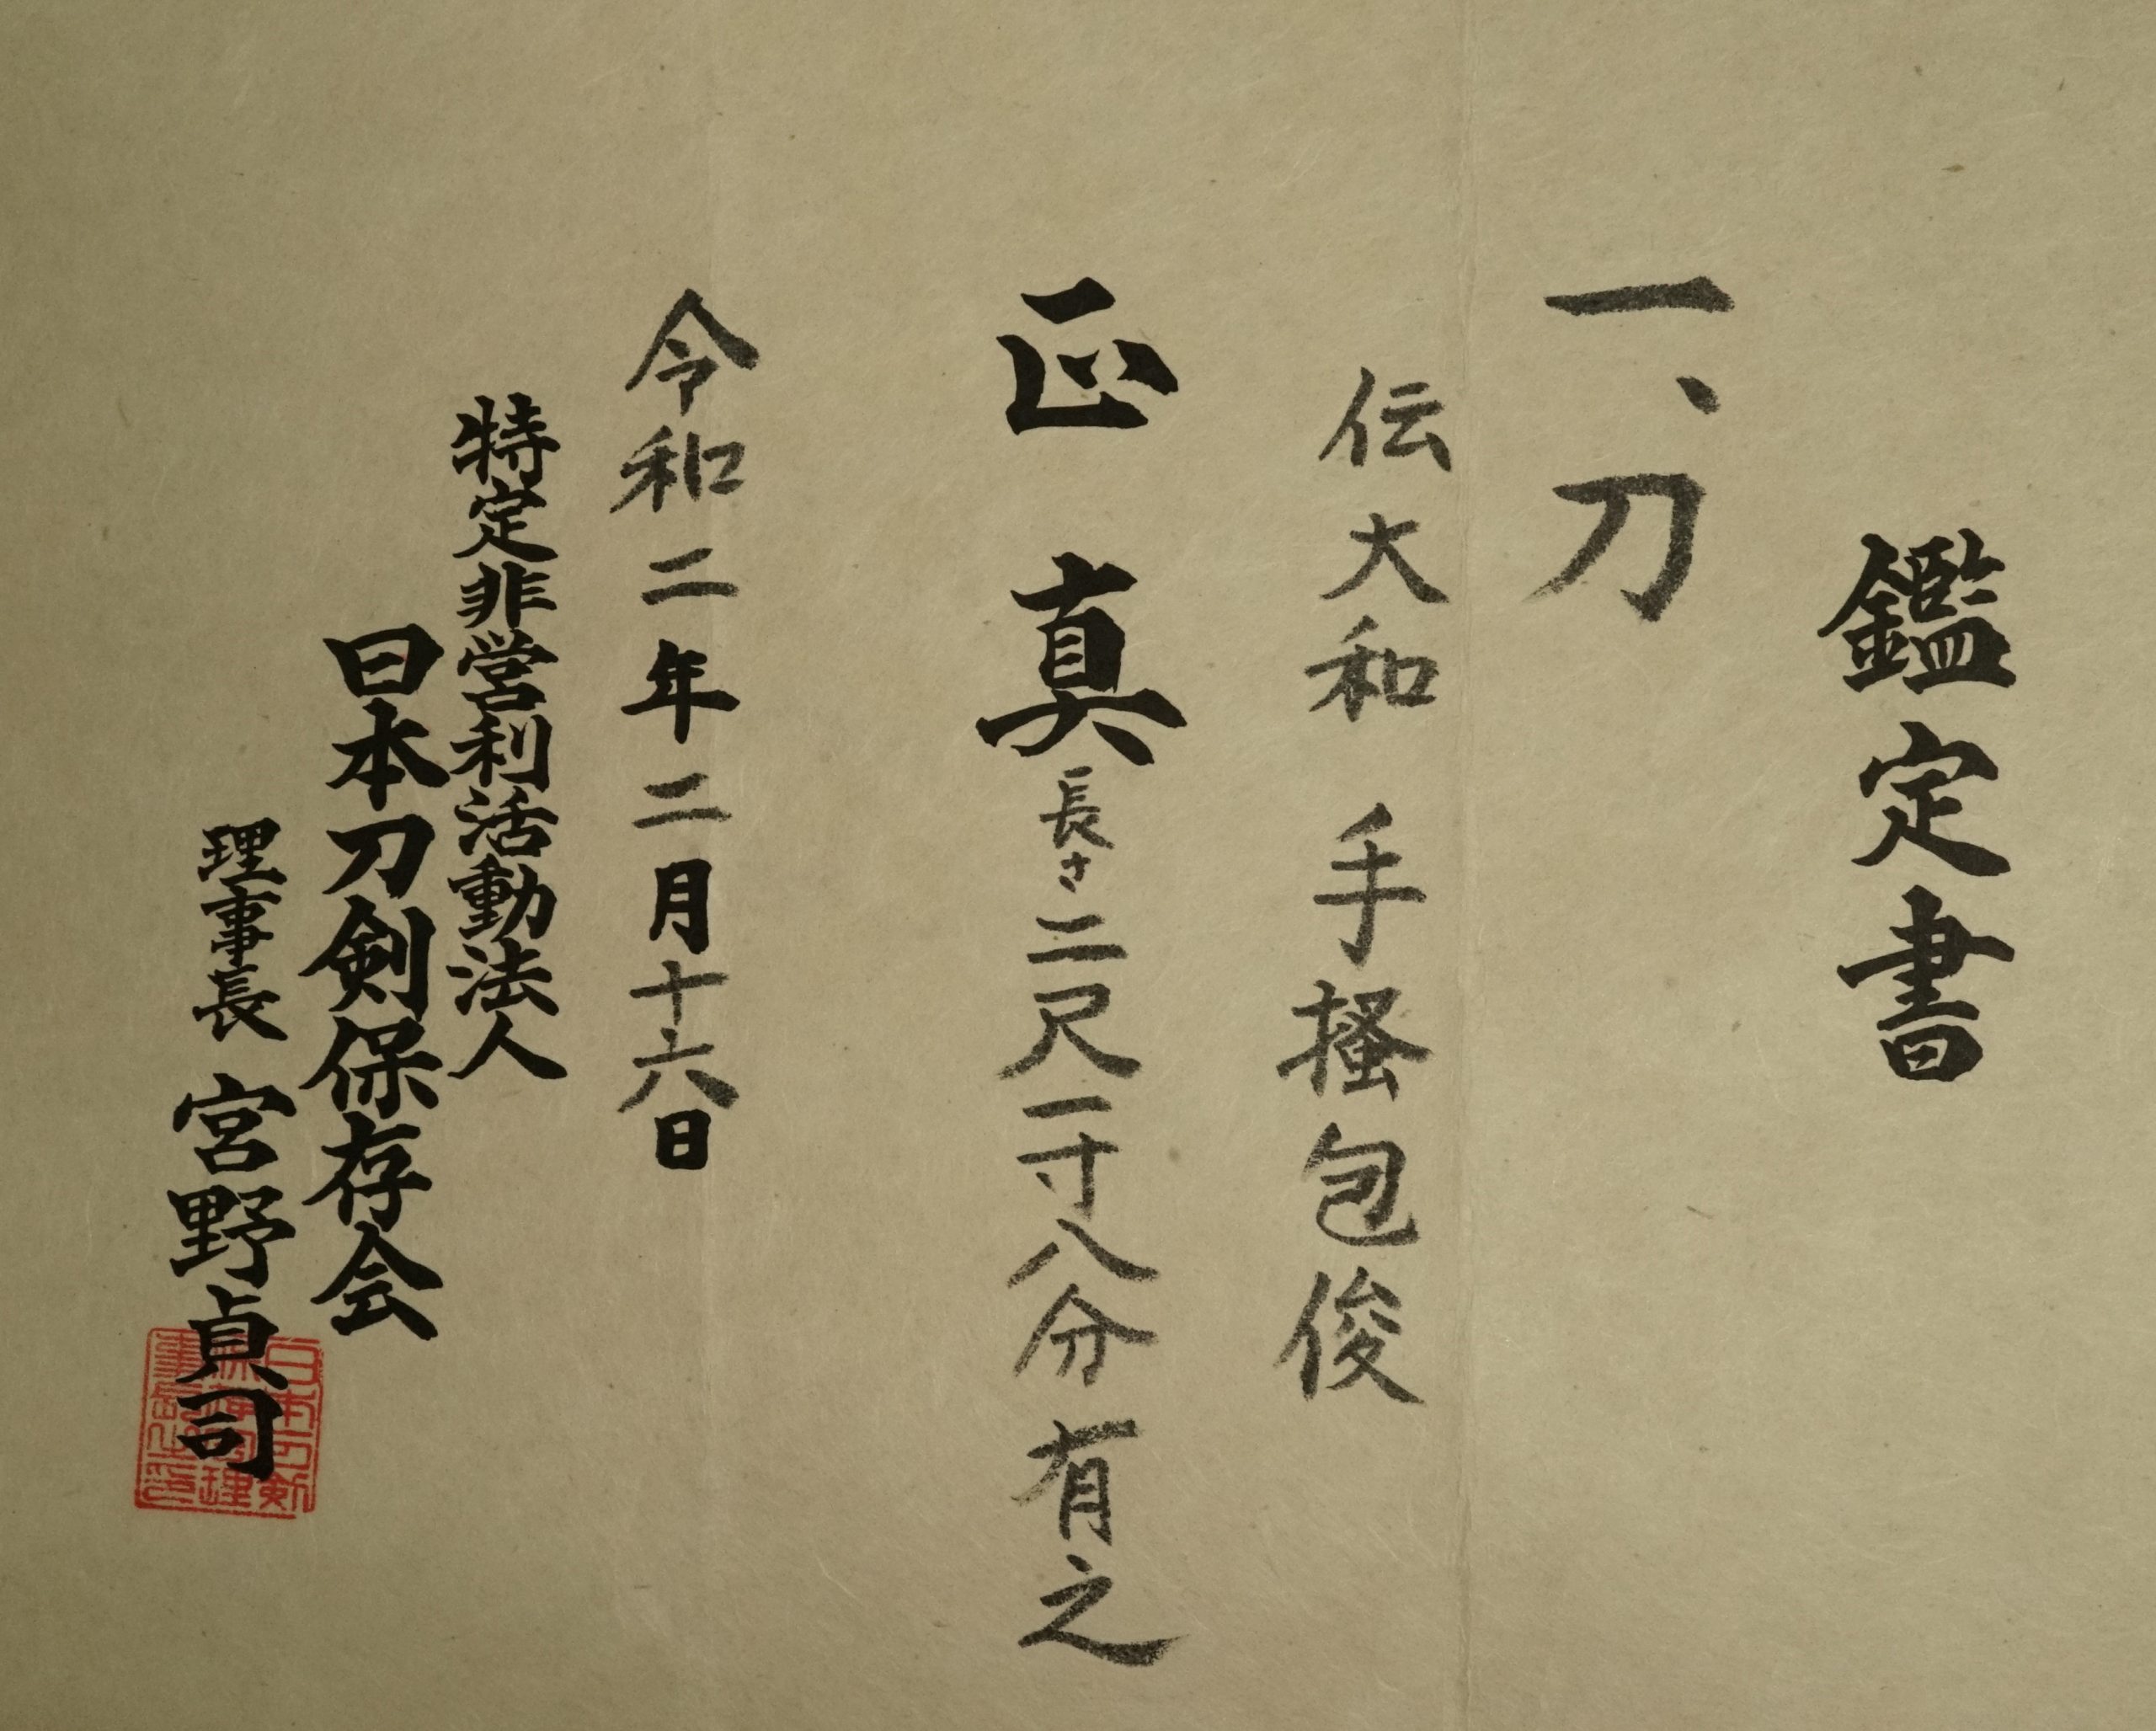 鑑定書
一、刀
伝大和 手掻包俊
正真 長さ二尺一寸八分有之
令和二年二月十六日
特定非営利活動法人
日本刀剣保存会
理事長 宮野貞司